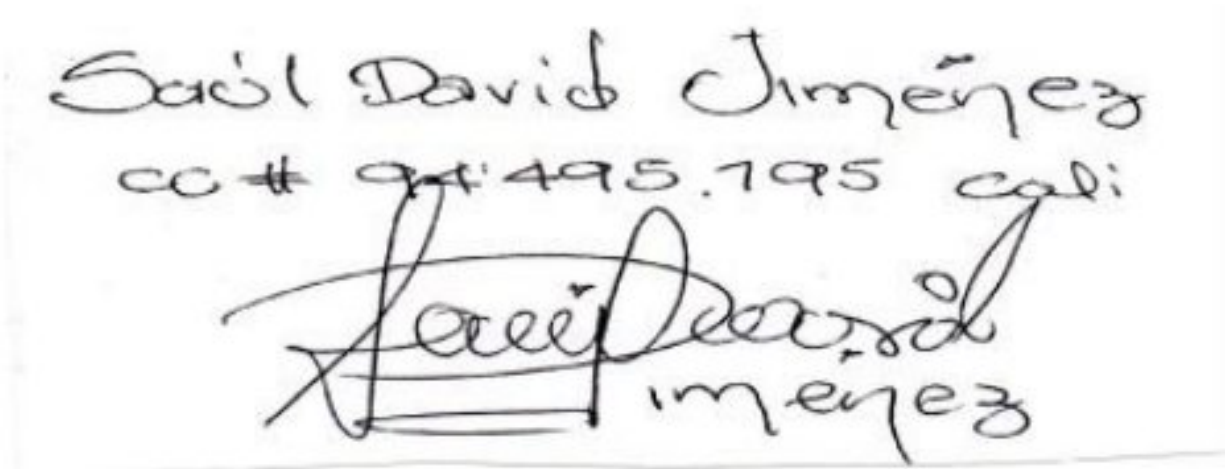 Saúl David Jiménez
cc # 94'495.795 cali
Saúl David
Jiménez